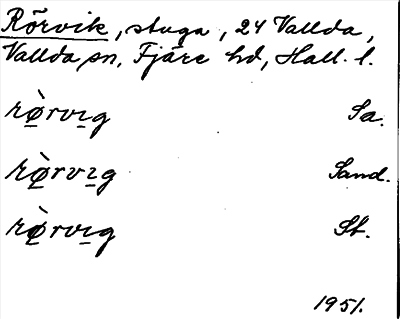 Rörvik, stuga, 24 Vallda,
Vallda sn, Fjäre hd, Hall. l.
rø̀rvıg Sa.
rø̀rvıg Sand.
rø̀rvıg St.
1951.